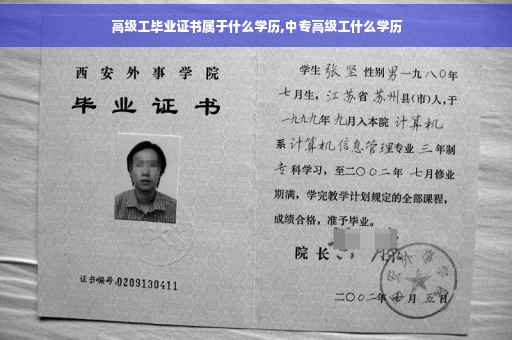 高级工毕业证书属于什么学历,中专高级工什么学历
西安外事学院
毕业证书
证书编号:0209130411
学生 张坚 性别 男 一九八〇年
七月生, 江苏省 苏州县(市)人,于
一九九九年 九月入本院 计算机
系 计算机信息管理专业 三 年制
专科学习, 至二〇〇二年 七月修业
期满, 学完教学计划规定的全部课程,
成绩合格, 准予毕业。
院长
二〇〇二年 月 五日